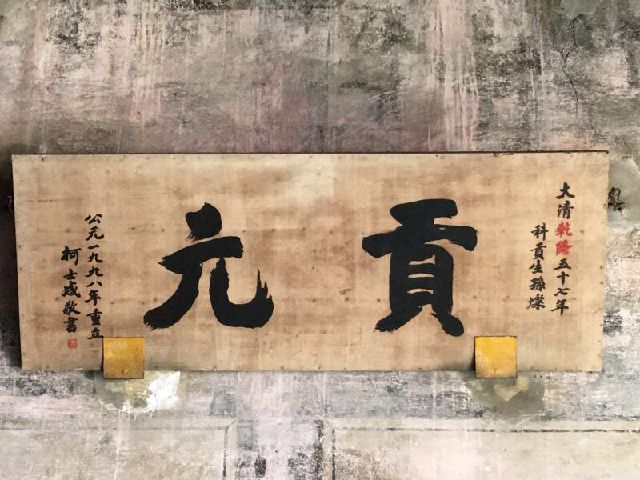 大清乾隆五十七年
科貢生孫燦
貢元
公元一九九八年重立
柯士成敬書